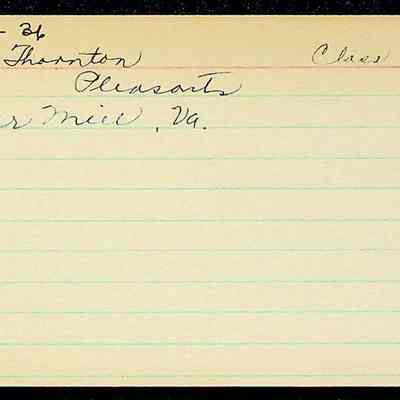 - 36
Thornton Class
Pleasants
r Mill, Va.